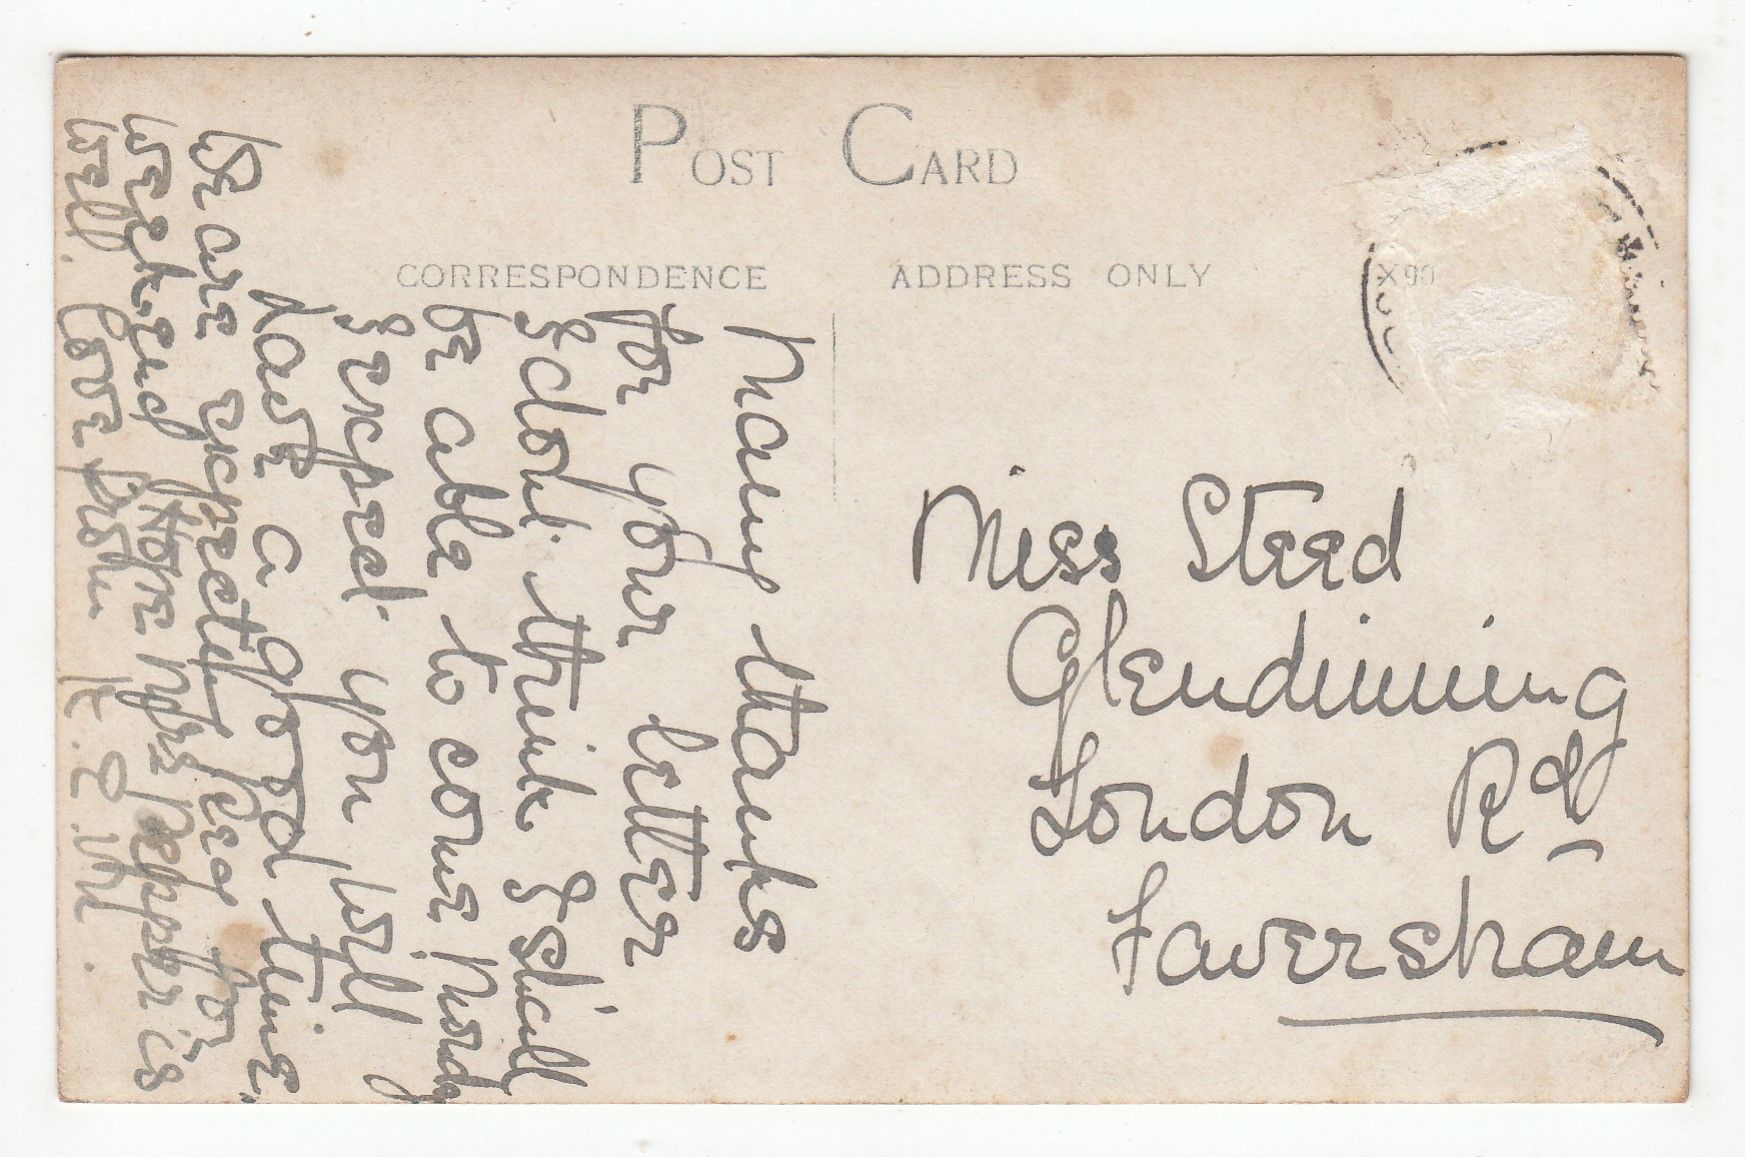 POST CARD
CORRESPONDENCE
ADDRESS ONLY
Many thanks
for your letter
I dont think I shall
be able to come Mondy
I expect you will
have a good time.
We are expecting Reg for
week-end Hope Mrs Pepper is
well. Love from K.E.W.
Miss Steed
Glendinning
London Rd
Faversham